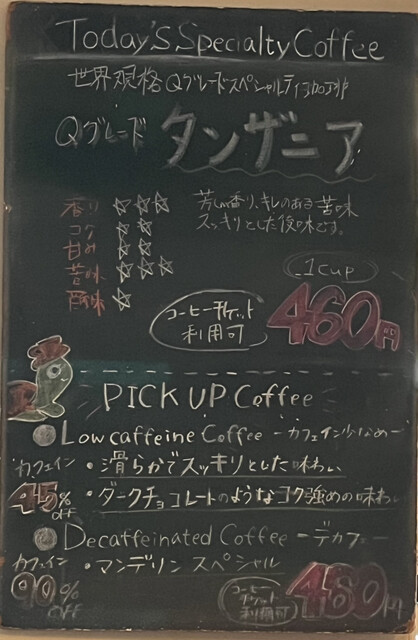 Today's Specialty Coffee
世界規格Qグレードスペシャルティ珈琲
Qグレード タンザニア
香り ☆☆☆
コク ☆☆
甘み ☆☆
苦味 ☆☆☆
酸味 ☆
芳しい香り、キレのある苦味
スッキリとした後味です。
1cup
コーヒーチケット
利用可
460円
PICK UP Coffee
Low caffeine Coffee -カフェイン少なめ-
カフェイン
45%
OFF
・滑らかでスッキリとした味わい
・ダークチョコレートのようなコク強めの味わい
Decaffeinated Coffee -デカフェ-
カフェイン
90%
OFF
・マンデリン スペシャル
コーヒー
チケット
利用可
460円